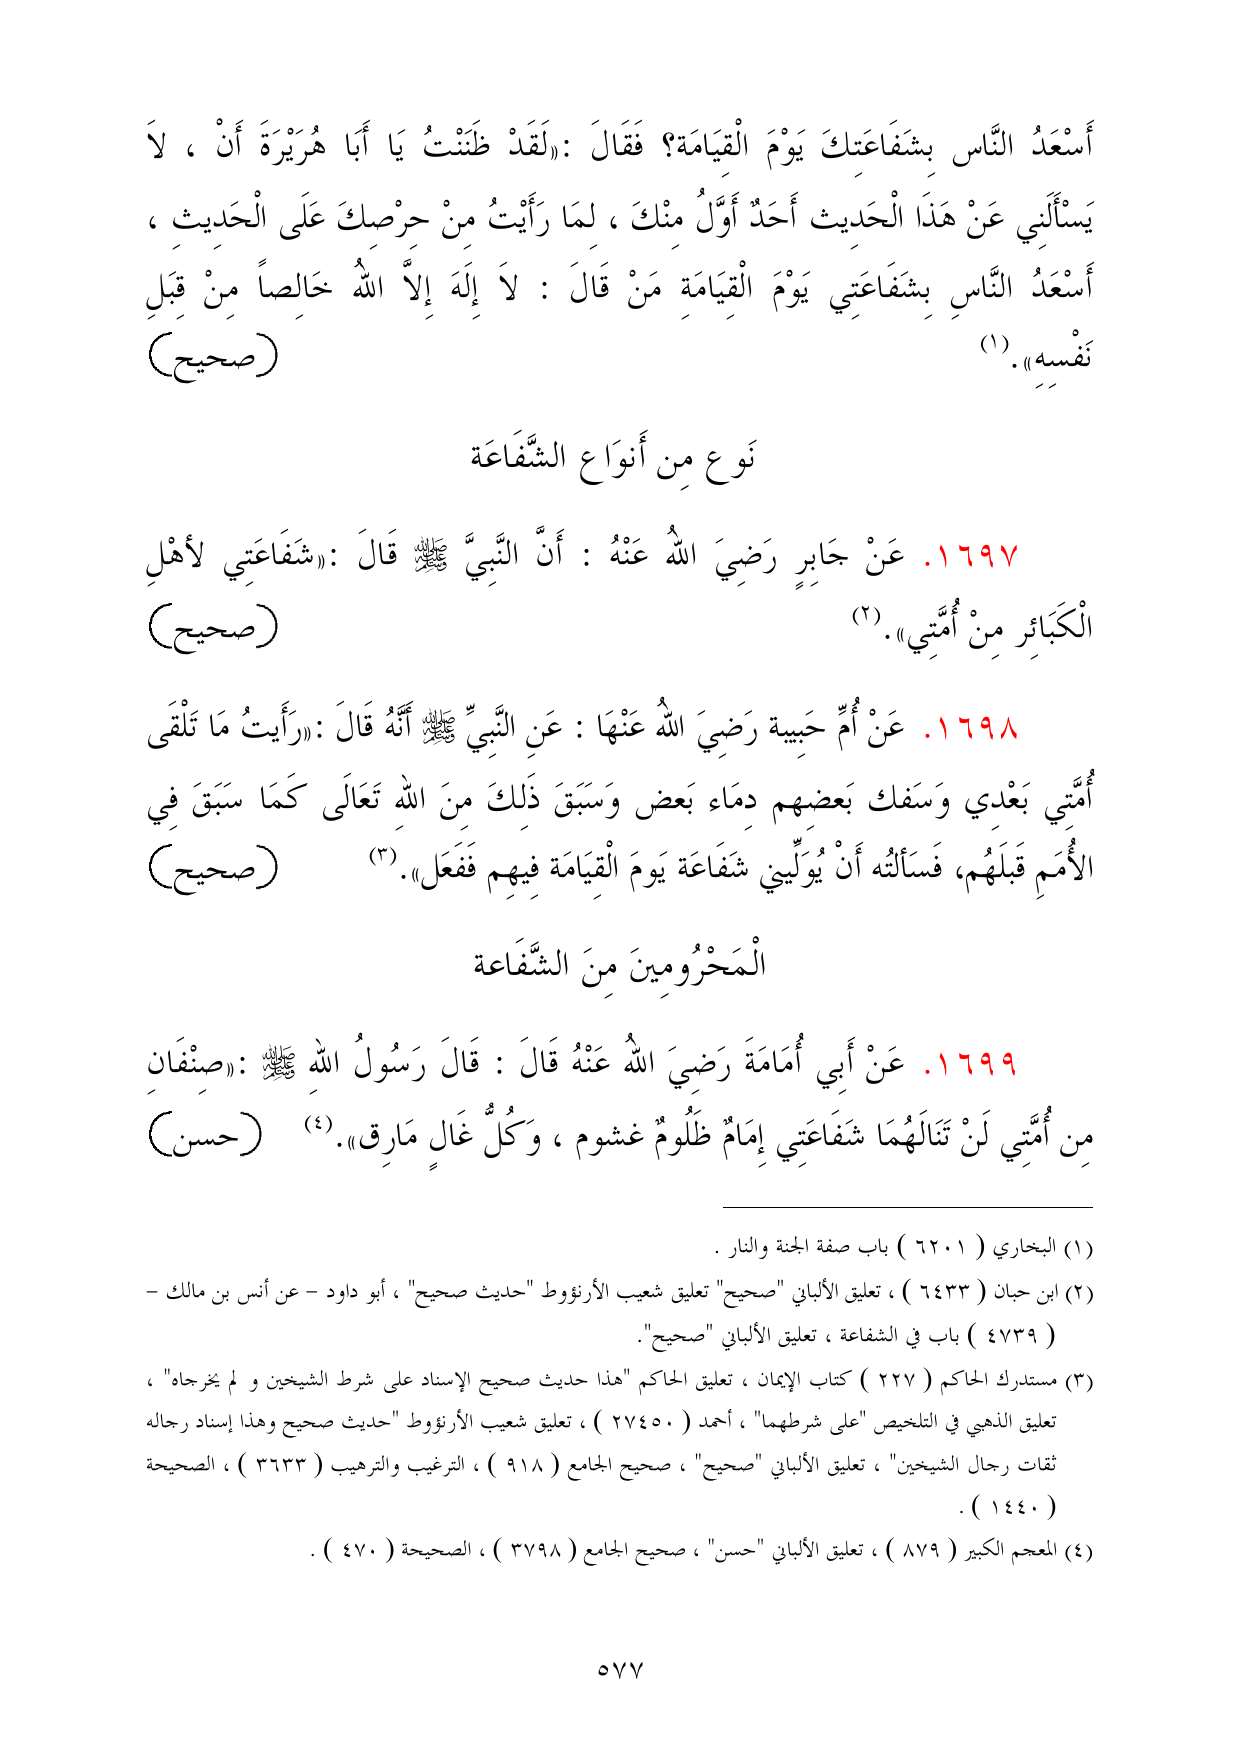 أَسْعَدُ النَّاس بِشَفَاعَتِكَ يَوْمَ الْقِيَامَة؟ فَقَالَ :«لَقَدْ ظَنَنْتُ يَا أَبَا هُرَيْرَةَ أَنْ ، لاَ
يَسْأَلَنِي عَنْ هَذَا الْحَدِيث أَحَدٌ أَوَّلُ مِنْكَ ، لِمَا رَأَيْتُ مِنْ حِرْصِكَ عَلَى الْحَدِيثِ ،
أَسْعَدُ النَّاسِ بِشَفَاعَتِي يَوْمَ الْقِيَامَةِ مَنْ قَالَ : لاَ إِلَهَ إِلاَّ اللهُ خَالِصاً مِنْ قِبَلِ
نَفْسِهِ».(١) (صحيح)
نَوع مِن أَنوَاع الشَّفَاعَة
١٦٩٧. عَنْ جَابِرٍ رَضِيَ اللهُ عَنْهُ : أَنَّ النَّبِيَّ ﷺ قَالَ :«شَفَاعَتِي لأهْلِ
الْكَبَائِر مِنْ أُمَّتِي».(٢) (صحيح)
١٦٩٨. عَنْ أُمِّ حَبِيبة رَضِيَ اللهُ عَنْهَا : عَنِ النَّبِيِّ ﷺ أَنَّهُ قَالَ :«رَأَيتُ مَا تَلْقَى
أُمَّتِي بَعْدِي وَسَفك بَعضِهم دِمَاء بَعض وَسَبَقَ ذَلِكَ مِنَ اللهِ تَعَالَى كَمَا سَبَقَ فِي
الأُمَمِ قَبلَهُم، فَسَألتُه أَنْ يُوَلِّيني شَفَاعَة يَومَ الْقِيَامَة فِيهِم فَفَعَل».(٣) (صحيح)
الْمَحْرُومِينَ مِنَ الشَّفَاعة
١٦٩٩. عَنْ أَبِي أُمَامَةَ رَضِيَ اللهُ عَنْهُ قَالَ : قَالَ رَسُولُ اللهِ ﷺ :«صِنْفَانِ
مِن أُمَّتِي لَنْ تَنَالَهُمَا شَفَاعَتِي إِمَامٌ ظَلُومٌ غشوم ، وَكُلُّ غَالٍ مَارِق».(٤) (حسن)
(١) البخاري ( ٦٢٠١ ) باب صفة الجنة والنار .
(٢) ابن حبان ( ٦٤٣٣ ) ، تعليق الألباني "صحيح" تعليق شعيب الأرنؤوط "حديث صحيح" ، أبو داود – عن أنس بن مالك –
( ٤٧٣٩ ) باب في الشفاعة ، تعليق الألباني "صحيح".
(٣) مستدرك الحاكم ( ٢٢٧ ) كتاب الإيمان ، تعليق الحاكم "هذا حديث صحيح الإسناد على شرط الشيخين و لم يخرجاه" ،
تعليق الذهبي في التلخيص "على شرطهما" ، أحمد ( ٢٧٤٥٠ ) ، تعليق شعيب الأرنؤوط "حديث صحيح وهذا إسناد رجاله
ثقات رجال الشيخين" ، تعليق الألباني "صحيح" ، صحيح الجامع ( ٩١٨ ) ، الترغيب والترهيب ( ٣٦٣٣ ) ، الصحيحة
( ١٤٤٠ ) .
(٤) المعجم الكبير ( ٨٧٩ ) ، تعليق الألباني "حسن" ، صحيح الجامع ( ٣٧٩٨ ) ، الصحيحة ( ٤٧٠ ) .
٥٧٧